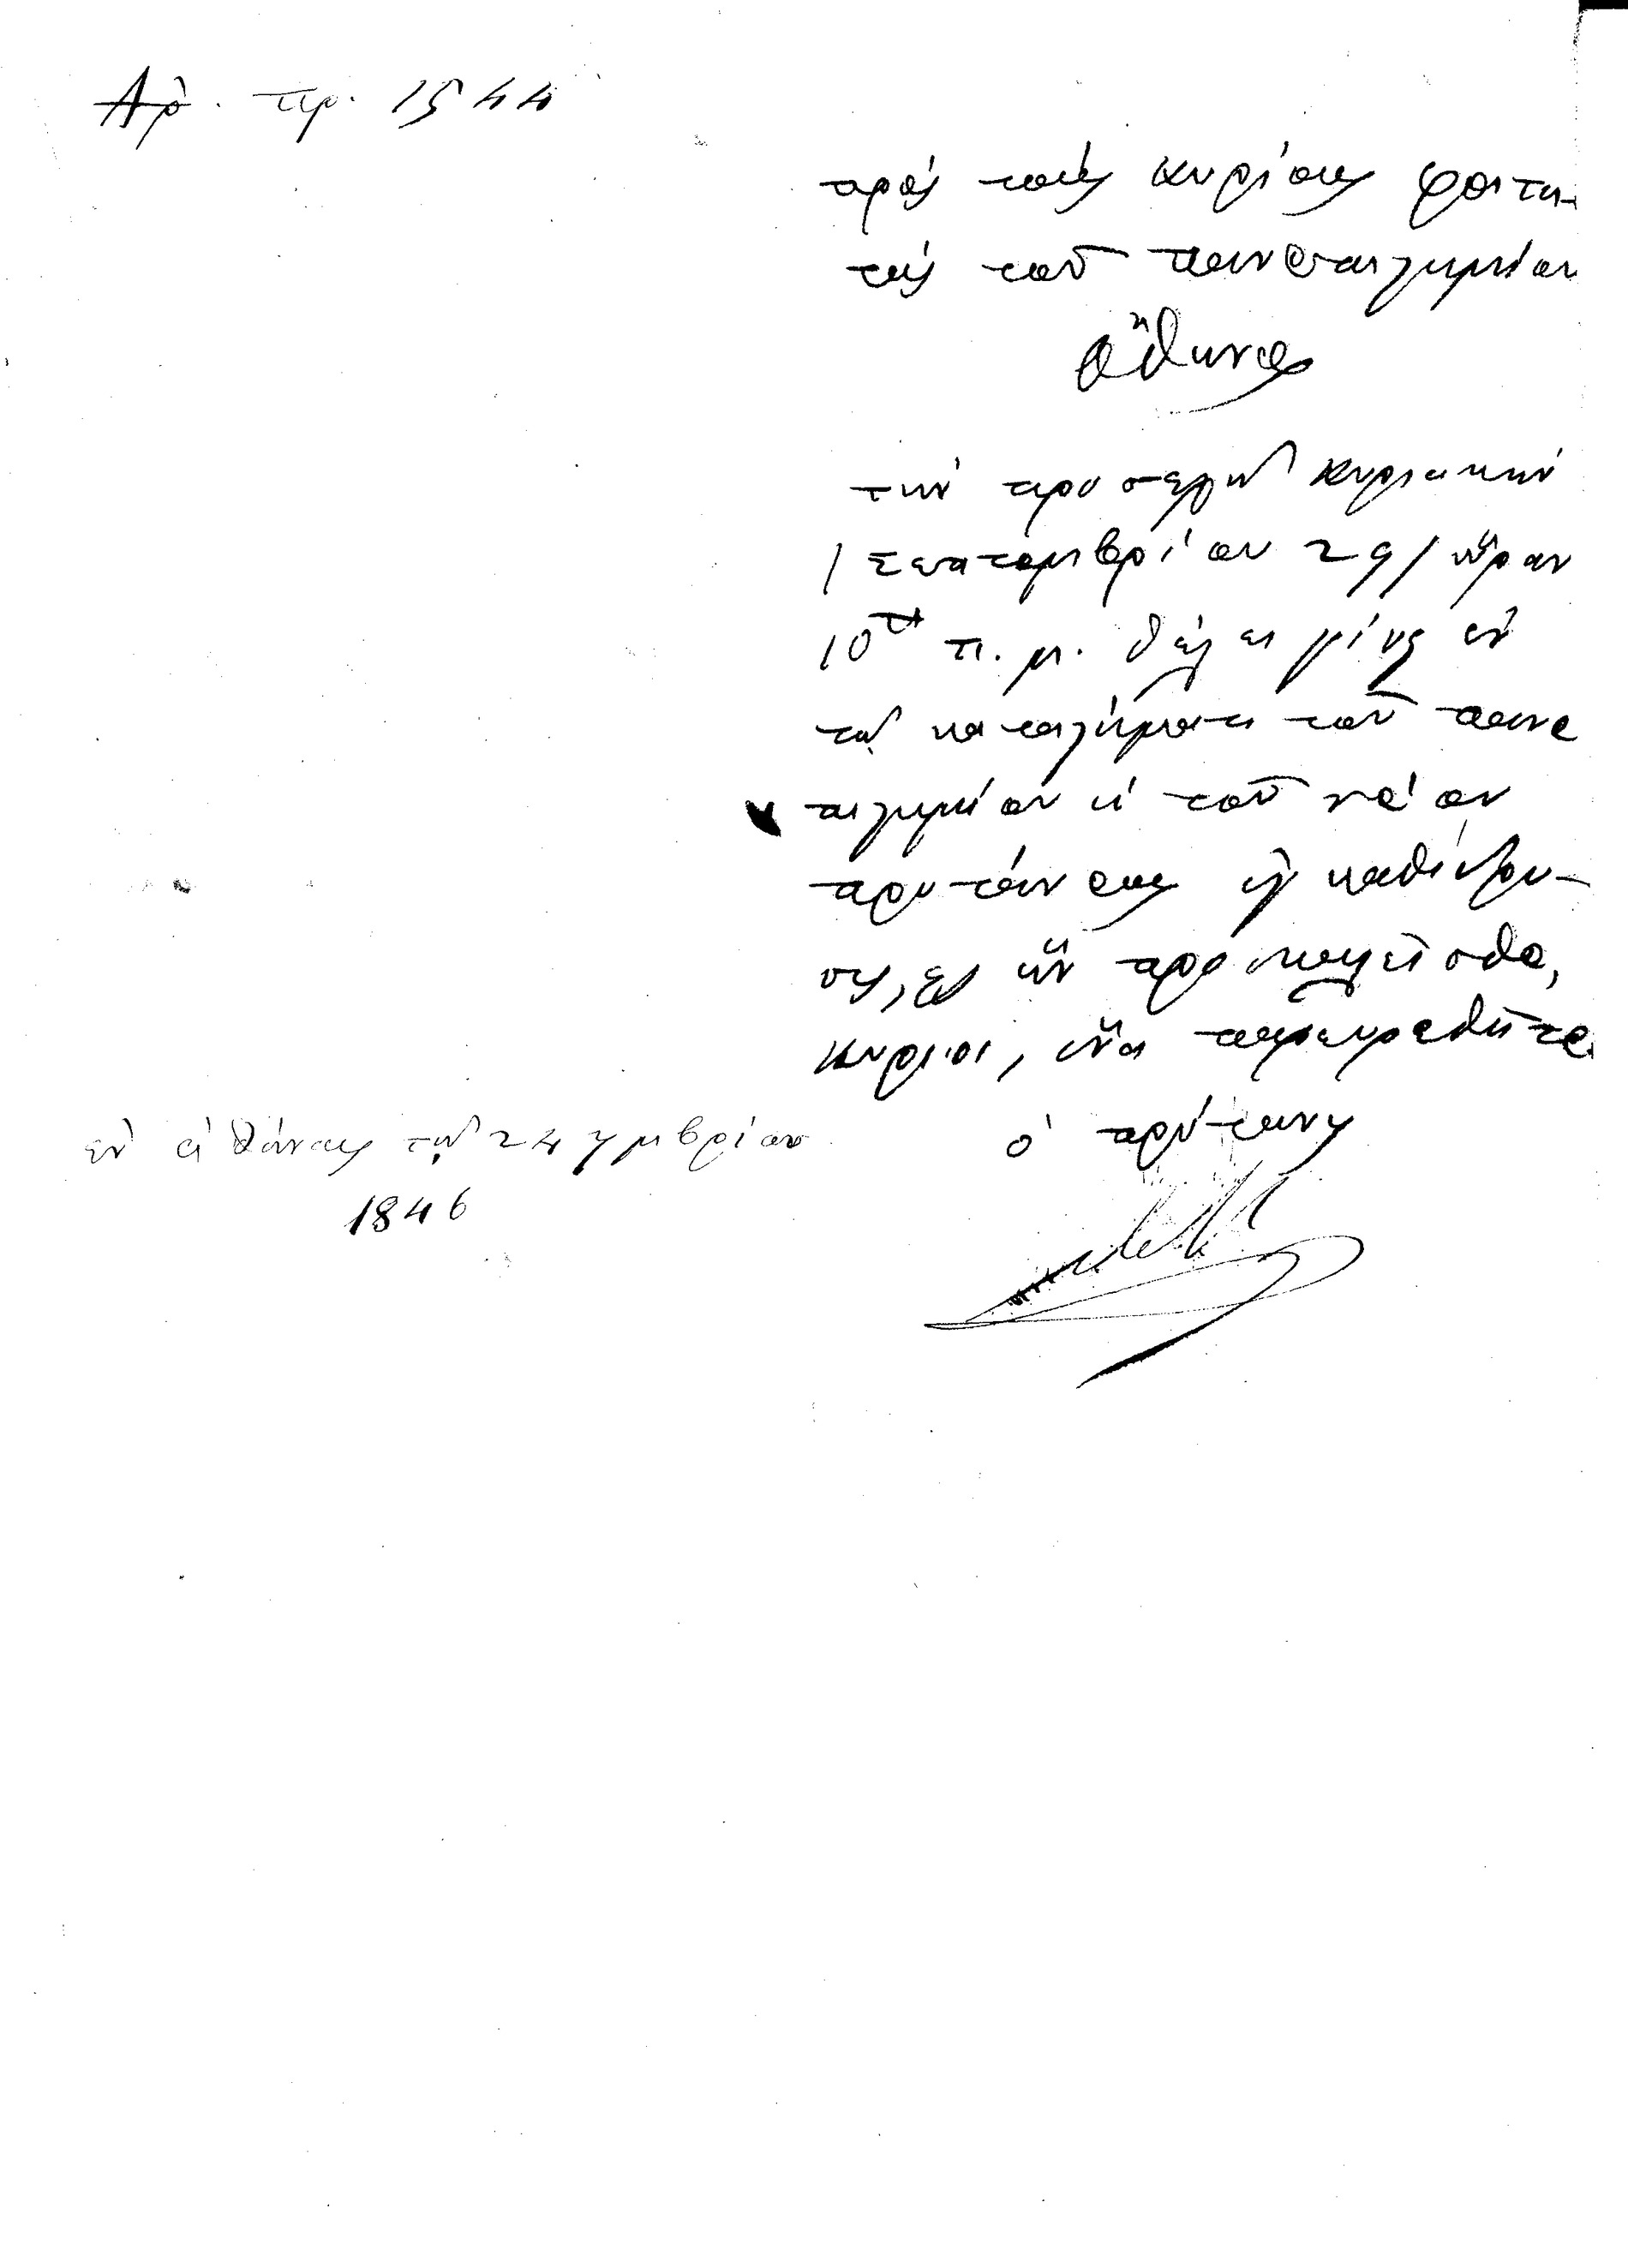 Αρ. πρ. 1544
πρός τούς κυρίους φοιτη-
τάς τοῦ πανεπιστημίου
Ὄθωνος
τήν προσεχῆ κυριακήν
/ Σεπτεμβρίου 29 / ὥραν
10ην π. μ. θέλει γίνει ἐν
τῷ καταστήματι τοῦ πανε
πιστημίου ἡ τοῦ νέου
πρυτάνεως ἐγκαθίδρυ-
σις, εἰς ἥν προσκαλεῖσθε,
κύριοι, ἵνα παρευρεθῆτε.
ὁ πρύτανις
ἐν ἀθήναις τῇ 24 7μβρίου
1846